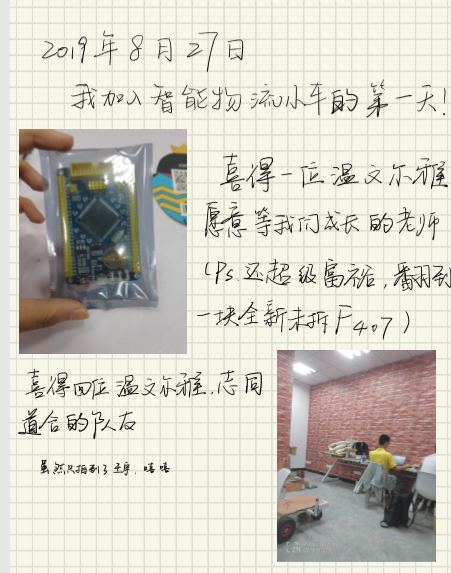 2019年8月27日
我加入智能物流小车的第一天!
喜得一位温文尔雅
愿意等我们成长的老师
(Ps.还超级富裕,翻到
一块全新未拆F407)
喜得四位温文尔雅,志同
道合的队友
虽然只拍到了,嘻嘻